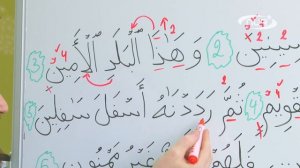 سِينِينَ 2 وَهَٰذَا الْبَلَدِ الْأَمِينِ 3
قْوِيمٍ 4 ثُمَّ رَدَدْنَٰهُ أَسْفَلَ سَٰفِلِينَ